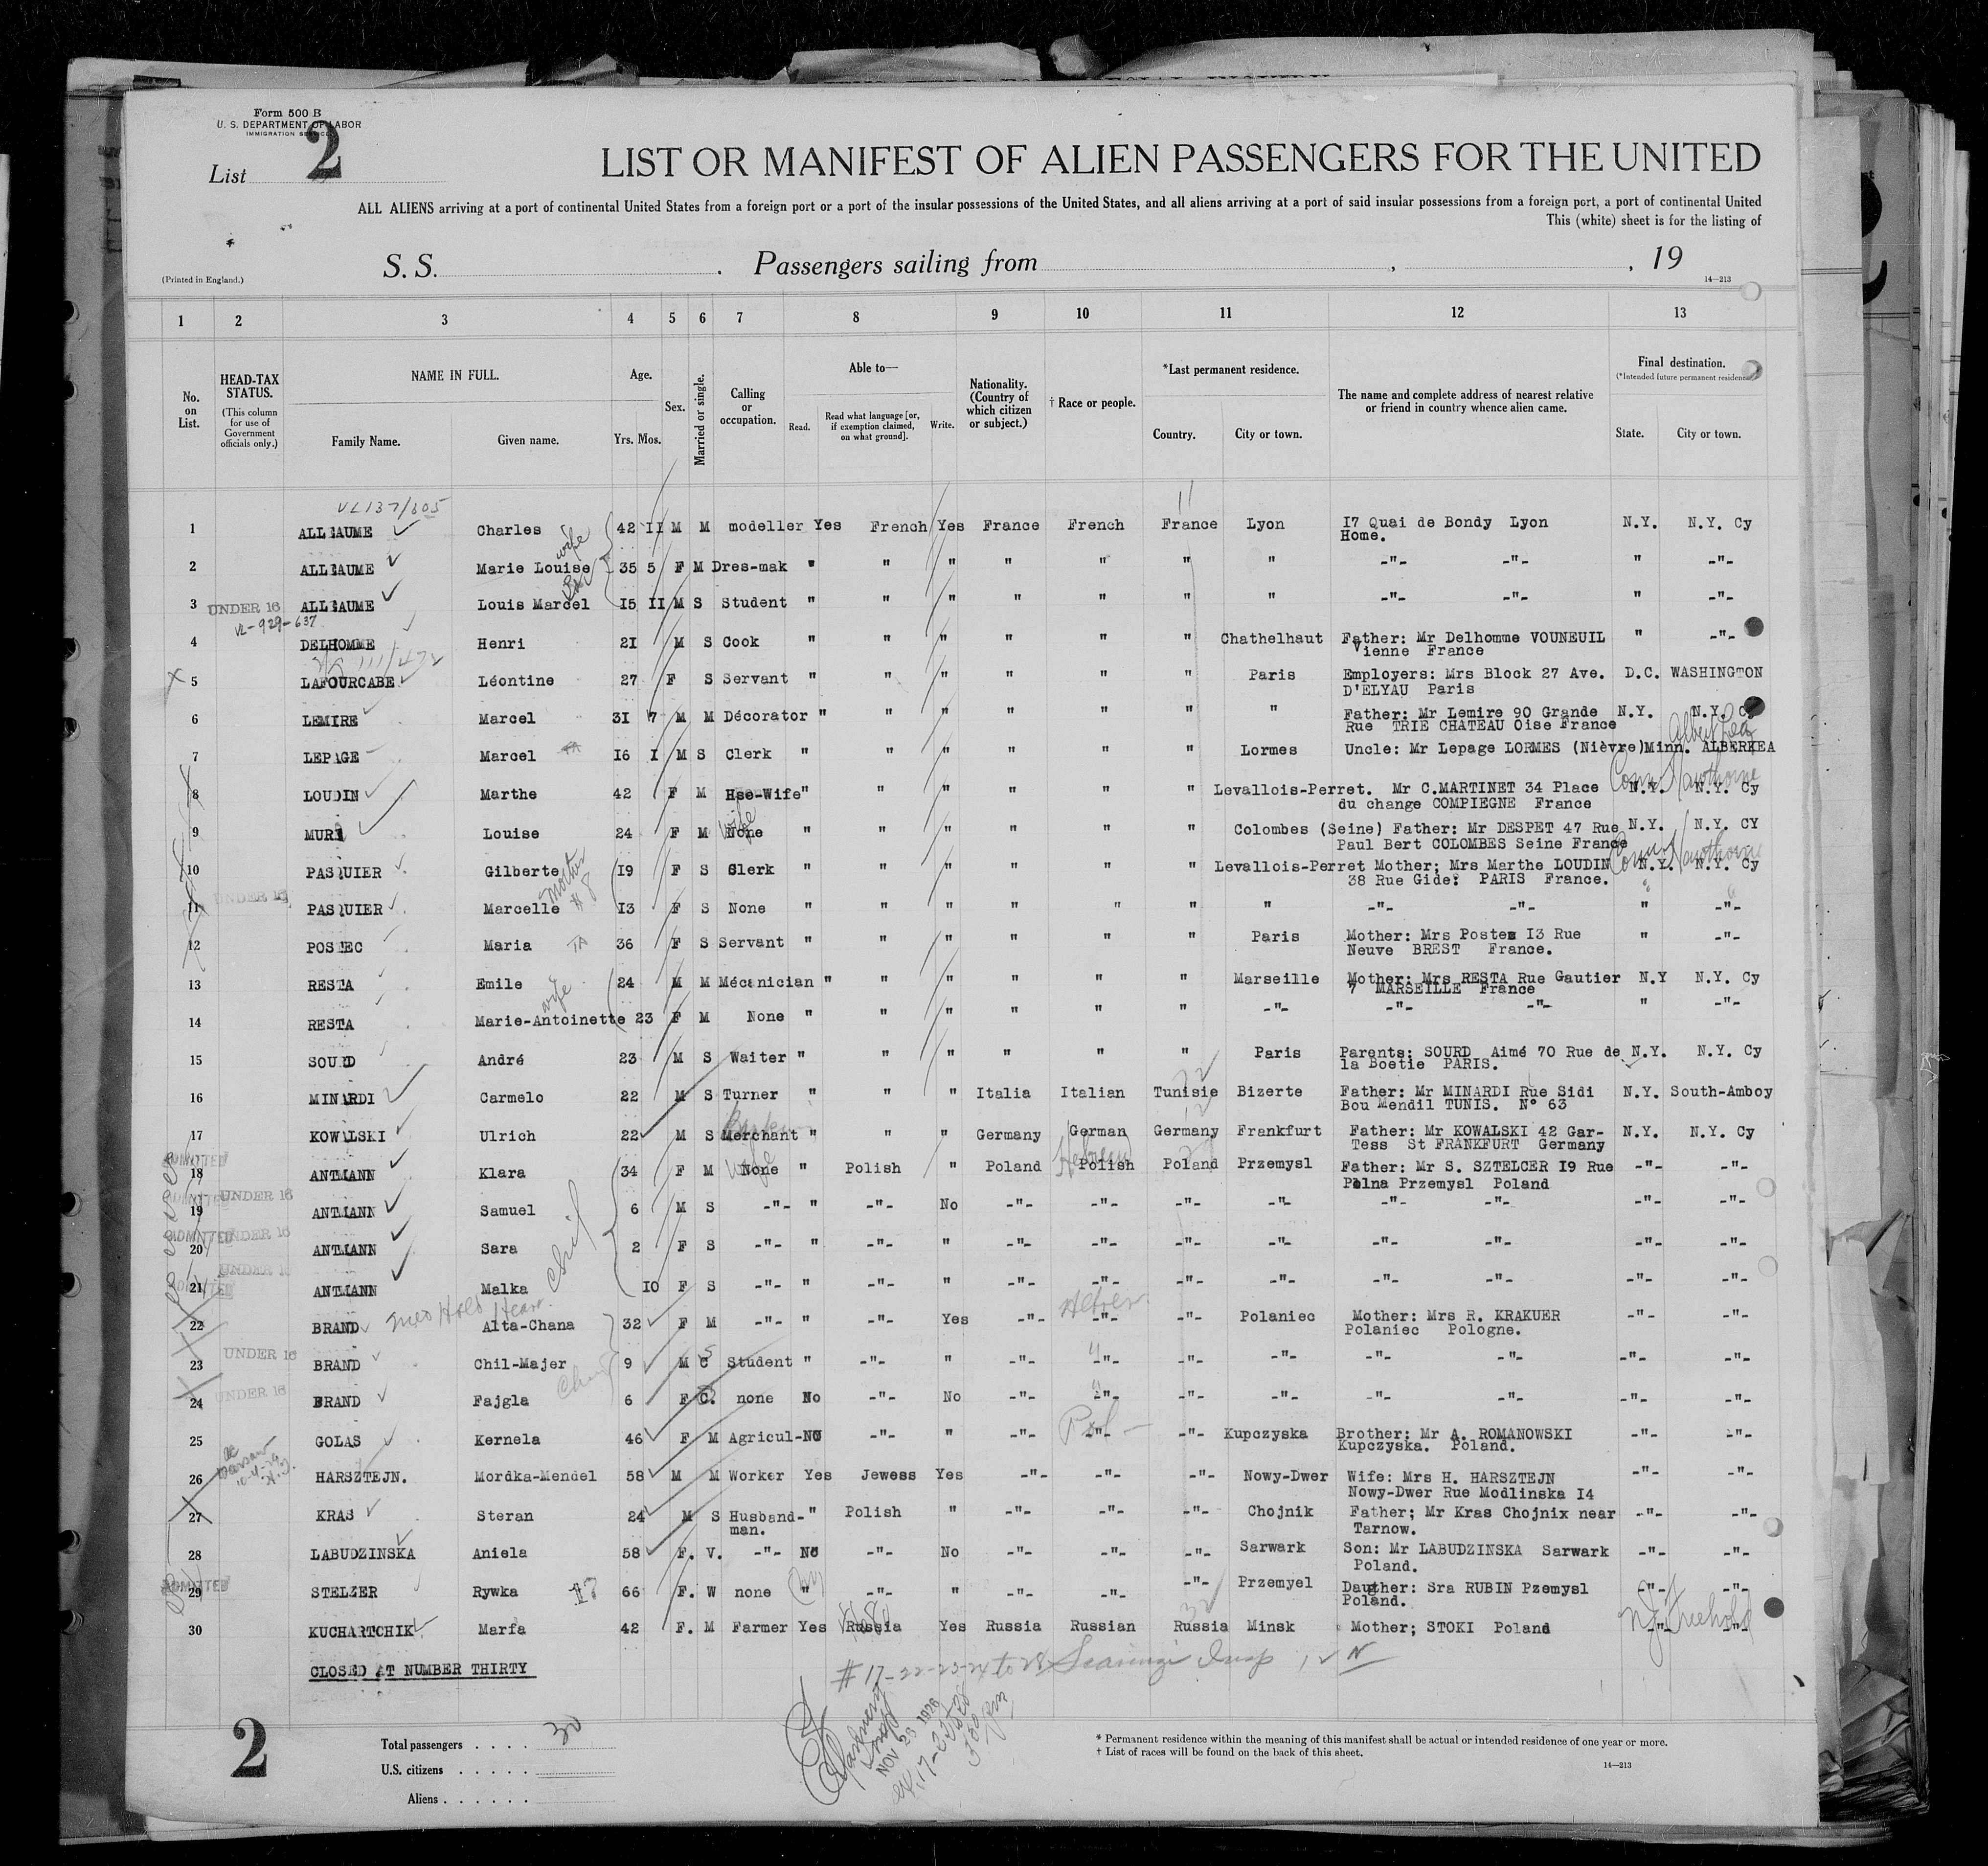 Form 500 B
U. S. DEPARTMENT OF LABOR
IMMIGRATION SERVICE
List 2
LIST OR MANIFEST OF ALIEN PASSENGERS FOR THE UNITED
ALL ALIENS arriving at a port of continental United States from a foreign port or a port of the insular possessions of the United States, and all aliens arriving at a port of said insular possessions from a foreign port, a port of continental United
This (white) sheet is for the listing of
S. S. . Passengers sailing from , , 19
(Printed in England.) 14—213
1 2 3 4 5 6 7 8 9 10 11 12 13
No. on List.
HEAD-TAX STATUS.
(This column for use of Government officials only.)
NAME IN FULL.
Family Name. Given name.
Age.
Yrs. Mos.
Sex.
Married or single.
Calling or occupation.
Able to—
Read. Read what language [or, if exemption claimed, on what ground]. Write.
Nationality. (Country of which citizen or subject.)
† Race or people.
*Last permanent residence.
Country. City or town.
The name and complete address of nearest relative or friend in country whence alien came.
Final destination.
(*Intended future permanent residence.)
State. City or town.
1 ALLEAUME Charles 42 II M M modeller Yes French Yes France French France Lyon 17 Quai de Bondy Lyon N.Y. N.Y. Cy
Home.
wife
2 ALLEAUME Marie Louise 35 5 F M Dres-mak " " " " " " " -"- -"- " -"-
3 UNDER 16 ALLEAUME Louis Marcel I5 II M S Student " " " " " " " -"- -"- " -"-
VL-929-637
4 DELHOMME Henri 2I M S Cook " " " " " " Chathelhaut Father: Mr Delhomme VOUNEUIL " -"-
Vienne France
5 LAFOURCABE Léontine 27 F S Servant " " " " " " Paris Employers: Mrs Block 27 Ave. D.C. WASHINGTON
D'ELYAU Paris
6 LEMIRE Marcel 3I 7 M M Décorator " " " " " " " Father: Mr Lemire 90 Grande N.Y. N.Y. Cy
Rue TRIE CHATEAU Oise France
Albert Lea
7 LEPAGE Marcel I6 I M S Clerk " " " " " " Lormes Uncle: Mr Lepage LORMES (Nièvre) Minn. ALBERKEA
Conn Hawthorne
8 LOUDIN Marthe 42 F M Hse-Wife " " " " " " Levallois-Perret. Mr C.MARTINET 34 Place N.Y. N.Y. Cy
du change COMPIEGNE France
wife
9 MURI Louise 24 F M None " " " " " " Colombes (Seine) Father: Mr DESPET 47 Rue N.Y. N.Y. CY
Paul Bert COLOMBES Seine France
Conn Hawthorne
10 PASQUIER Gilberte I9 F S Clerk " " " " " " Levallois-Perret Mother; Mrs Marthe LOUDIN N.Y. N.Y. Cy
38 Rue Gide: PARIS France.
mother #8
UNDER 16
11 PASQUIER Marcelle I3 F S None " " " " " " " -"- -"- " -"-
12 POSTEC Maria TA 36 F S Servant " " " " " " Paris Mother: Mrs Postes I3 Rue " -"-
Neuve BREST France.
13 RESTA Emile 24 M M Mécanician " " " " " " Marseille Mother: Mrs RESTA Rue Gautier N.Y N.Y. Cy
7 MARSEILLE France
wife
14 RESTA Marie-Antoinette 23 F M None " " " " " " -"- -"- -"- " -"-
15 SOURD André 23 M S Waiter " " " " " " Paris Parents: SOURD Aimé 70 Rue de N.Y. N.Y. Cy
la Boetie PARIS.
16 MINARDI Carmelo 22 M S Turner " " " Italia Italian Tunisie Bizerte Father: Mr MINARDI Rue Sidi N.Y. South-Amboy
Bou Mendil TUNIS. N° 63
17 KOWALSKI Ulrich 22 M S Merchant " " " Germany German Germany Frankfurt Father: Mr KOWALSKI 42 Gar- N.Y. N.Y. Cy
Tess St FRANKFURT Germany
ADMITTED wife Hebrew
18 ANTMANN Klara 34 F M None " Polish " Poland Polish Poland Przemysl Father: Mr S. SZTELCER I9 Rue -"- -"-
Polna Przemysl Poland
ADMITTED UNDER 16
19 ANTMANN Samuel 6 M S -"- " -"- No -"- -"- -"- -"- -"- -"- -"- -"-
ADMITTED UNDER 16
20 ANTMANN Sara 2 F S -"- " -"- " -"- -"- -"- -"- -"- -"- -"- -"-
UNDER 16
21 ANTMANN Malka IO F S -"- " -"- " -"- -"- -"- -"- -"- -"- -"- -"-
22 BRAND Alta-Chana 32 F M -"- " -"- Yes -"- -"- -"- Polaniec Mother: Mrs R. KRAKUER -"- -"-
Polaniec Pologne.
UNDER 16
23 BRAND Chil-Majer 9 M C Student " -"- " -"- -"- -"- -"- -"- -"- -"- -"-
UNDER 16
24 BRAND Fajgla 6 F C. none No -"- No -"- -"- -"- -"- -"- -"- -"- -"-
Pol-
25 GOLAS Kernela 46 F M Agricul- NO -"- " -"- -"- -"- Kupczyska Brother: Mr A. ROMANOWSKI -"- -"-
Kupczyska. Poland.
26 HARSZTEJN. Mordka-Mendel 58 M M Worker Yes Jewess Yes -"- -"- -"- Nowy-Dwer Wife: Mrs H. HARSZTEJN -"- -"-
Nowy-Dwer Rue Modlinska I4
27 KRAS Steran 24 M S Husband- " Polish " -"- -"- -"- Chojnik Father; Mr Kras Chojnix near -"- -"-
man. Tarnow.
28 LABUDZINSKA Aniela 58 F. V. -"- NO -"- No -"- -"- -"- Sarwark Son: Mr LABUDZINSKA Sarwark -"- -"-
Poland.
ADMITTED
29 STELZER Rywka 66 F. W none " -"- " -"- -"- -"- Przemyel Daugther: Sra RUBIN Pzemysl -"- -"-
Poland.
30 KUCHARTCHIK Marfa 42 F. M Farmer Yes Russia Yes Russia Russian Russia Minsk Mother; STOKI Poland -"- -"-
NJ Freehold
CLOSED AT NUMBER THIRTY
NOV 23 1928
2
Total passengers . . . . 30
U.S. citizens . . . . .
Aliens . . . . . .
* Permanent residence within the meaning of this manifest shall be actual or intended residence of one year or more.
† List of races will be found on the back of this sheet.
14—213